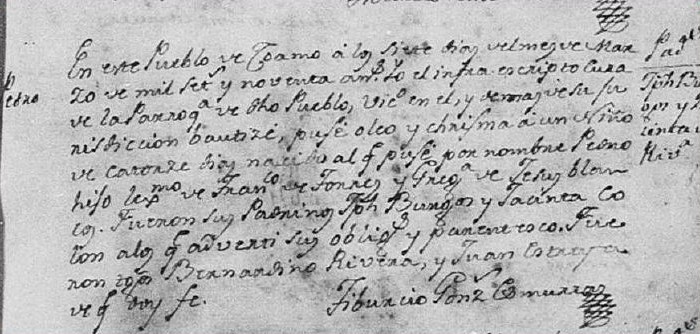 En este Pueblo de Coamo á los siete dias del mes de Mar
zo de mil set.s y noventa an.s Yo el infraescripto Cura
de la Parroq.a de dho Pueblo, Vic.o en el, y demas de su ju
risdiccion bautizé, pusé oleo y chrisma á un Niño
de catorze dias nacido al q pusé por nombre Pedro
hijo lex.mo de Fran.co de Torres y Greg.a de Jesus blan
cos. Fueron sus Padrinos Jph Burgos y Jacinta Co
lon a los q adverti sus oblig.s y parentesco. Fue
ron tgos Bernardino Rivera, y Juan
de q doy fe.
Tiburcio Gonz.s Esmurra
Pedro
Jph Bu
Riv.a